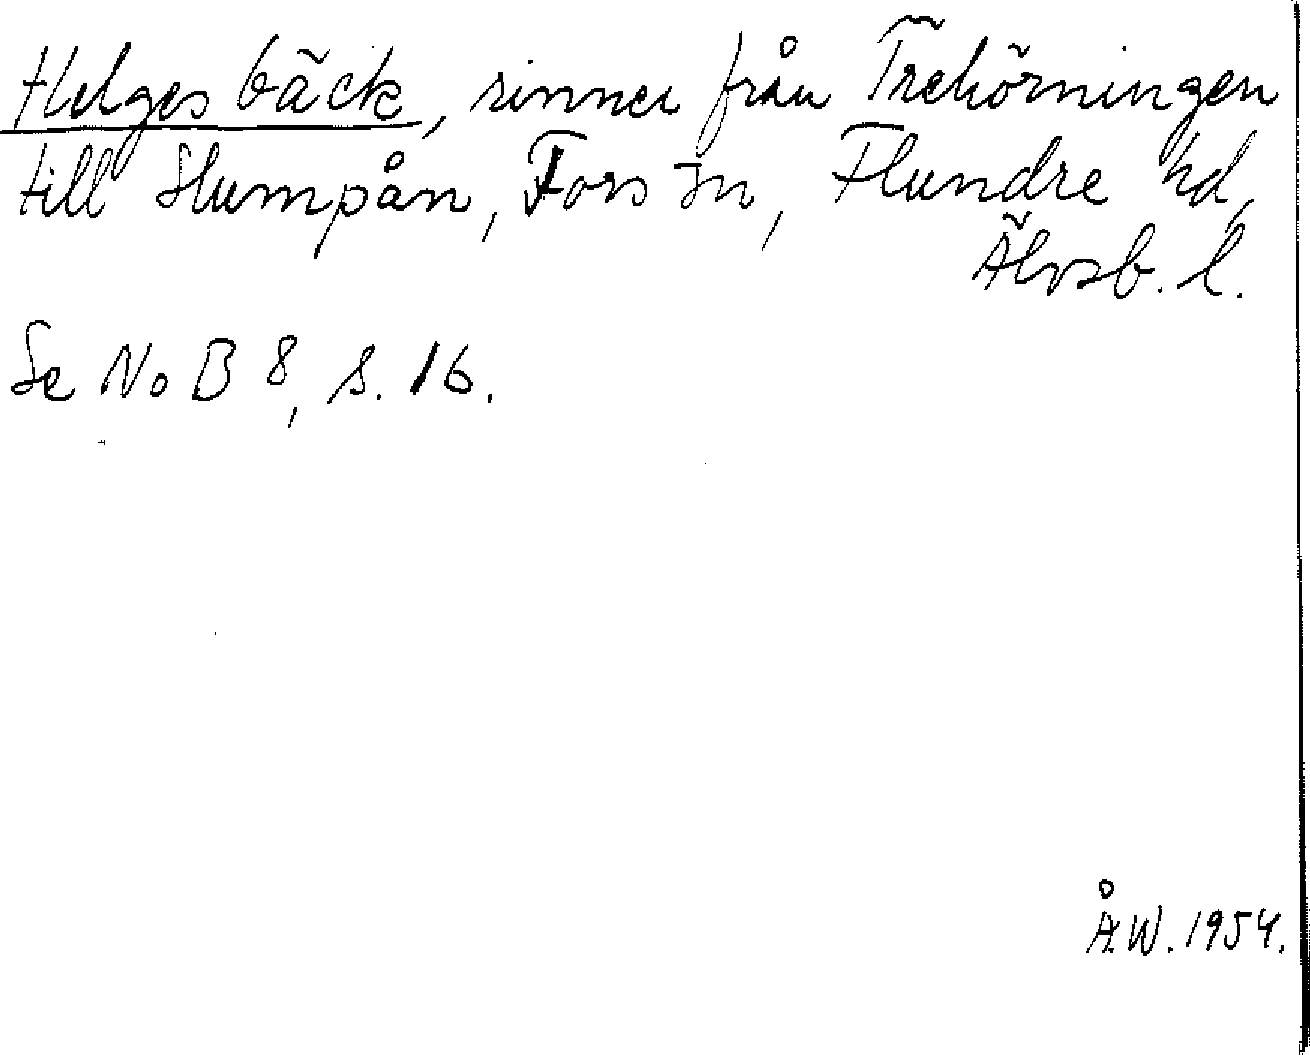 Helges bäck, rinner från Trehörningen
till Slumpån, Fors sn, Flundre hd,
Älvsb. l.
Se NoB 8, s. 16.
Å.W. 1954.